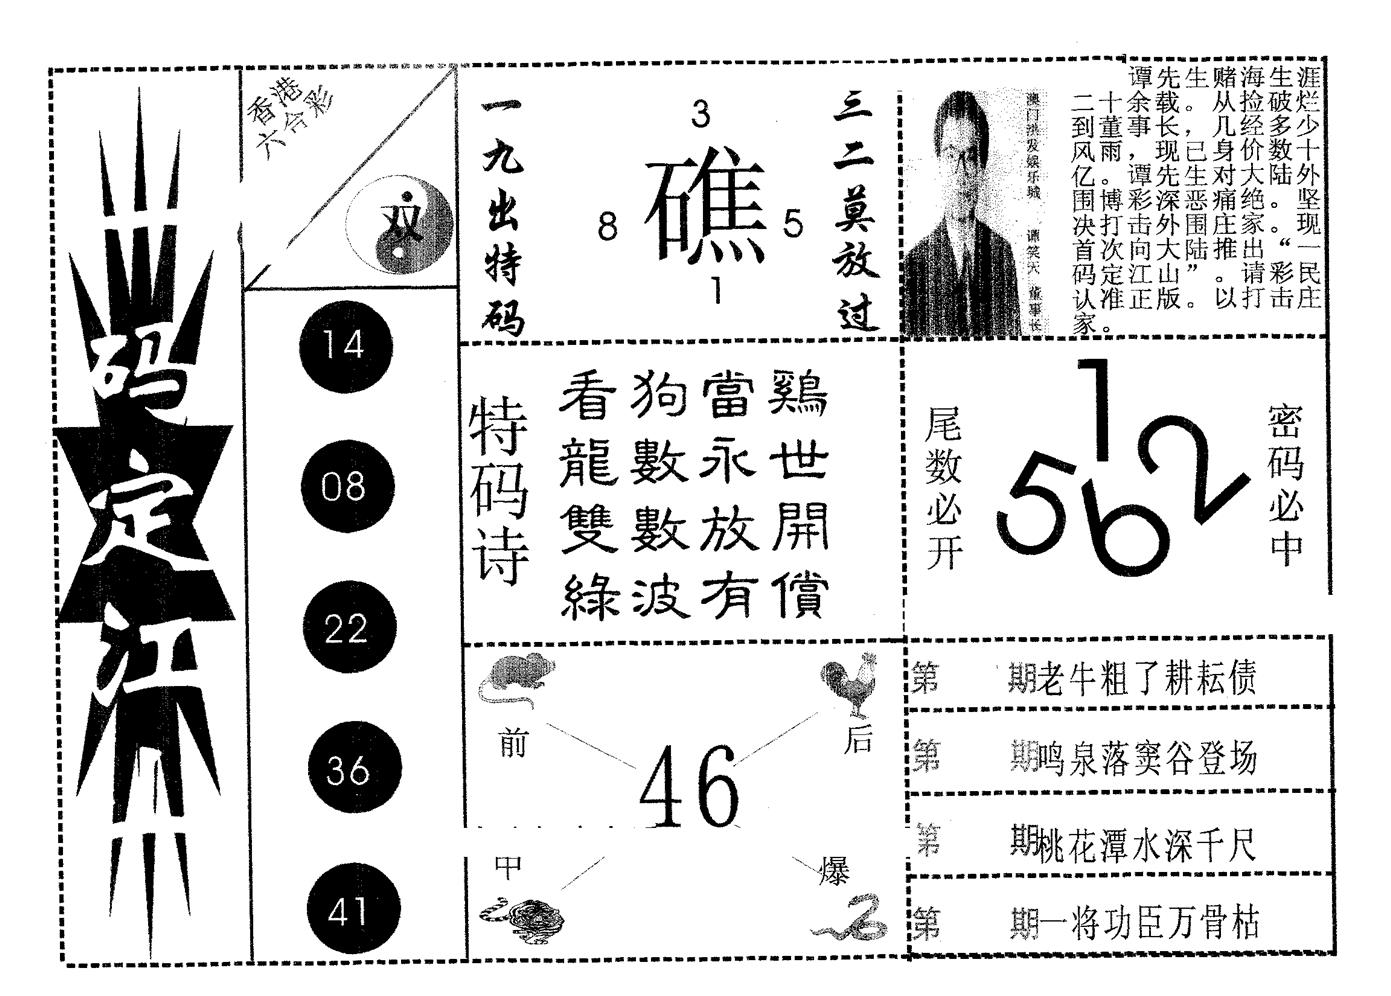 一码定江山
香港
六合彩
双
14
08
22
36
41
一九出特码
3
8
礁
5
1
三二莫放过
澳门洪发娱乐城 谭笑天 董事长
谭先生赌海生涯
二十余载。从捡破烂
到董事长，几经多少
风雨，现已身价数十
亿。谭先生对大陆外
围博彩深恶痛绝。坚
决打击外围庄家。现
首次向大陆推出“一
码定江山”。请彩民
认准正版。以打击庄
家。
特码诗
看狗當鷄
龍數永世
雙數放開
綠波有償
尾数必开
1
5
6
2
密码必中
前
后
46
中
爆
第 期老牛粗了耕耘债
第 期鸣泉落窦谷登场
第 期桃花潭水深千尺
第 期一将功臣万骨枯